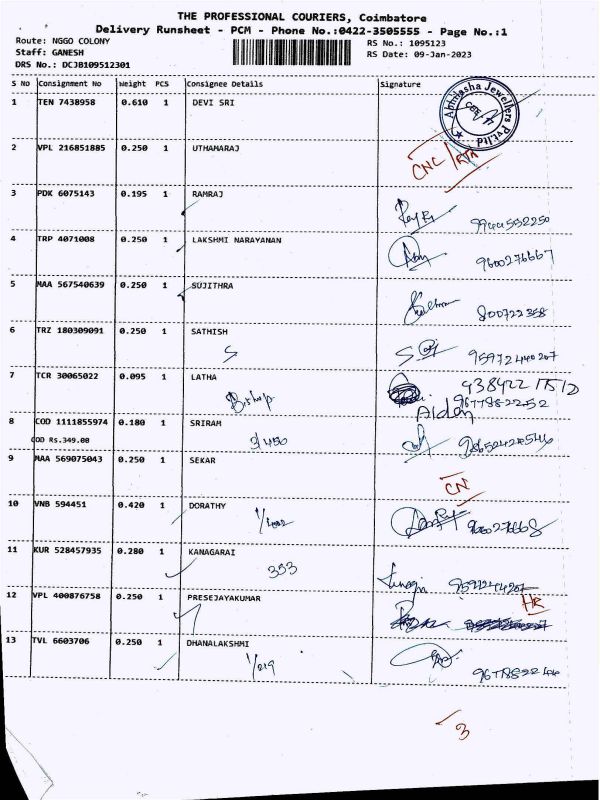 THE PROFESSIONAL COURIERS, Coimbatore
Delivery Runsheet - PCM - Phone No.:0422-3505555 - Page No.:1
Route: NGGO COLONY
RS No.: 1095123
Staff: GANESH
RS Date: 09-Jan-2023
DRS No.: DCJB109512301
S No Consignment No Weight PCS Consignee Details Signature
1 TEN 7438958 0.610 1 DEVI SRI
Abhilasha Jewellers Pvt Ltd
2 VPL 216851885 0.250 1 UTHAMARAJ CNC/RTA
3 PDK 6075143 0.195 1 RAMRAJ
9944532250
4 TRP 4071008 0.250 1 LAKSHMI NARAYANAN
9600276667
5 MAA 567540639 0.250 1 SUJITHRA
800722358
6 TRZ 180309091 0.250 1 SATHISH
S 95972440207
7 TCR 30065022 0.095 1 LATHA
Bishop 9677882252
8 COD 1111855974 0.180 1 SRIRAM
COD Rs.349.00 3/450
9 MAA 569075043 0.250 1 SEKAR
CN
10 VNB 594451 0.420 1 DOROTHY
9600276668
11 KUR 528457935 0.280 1 KANAGARAI
333
12 VPL 400876758 0.250 1 PRESEJAYAKUMAR
HR
13 TVL 6603706 0.250 1 DHANALAKSHMI
1/219
3